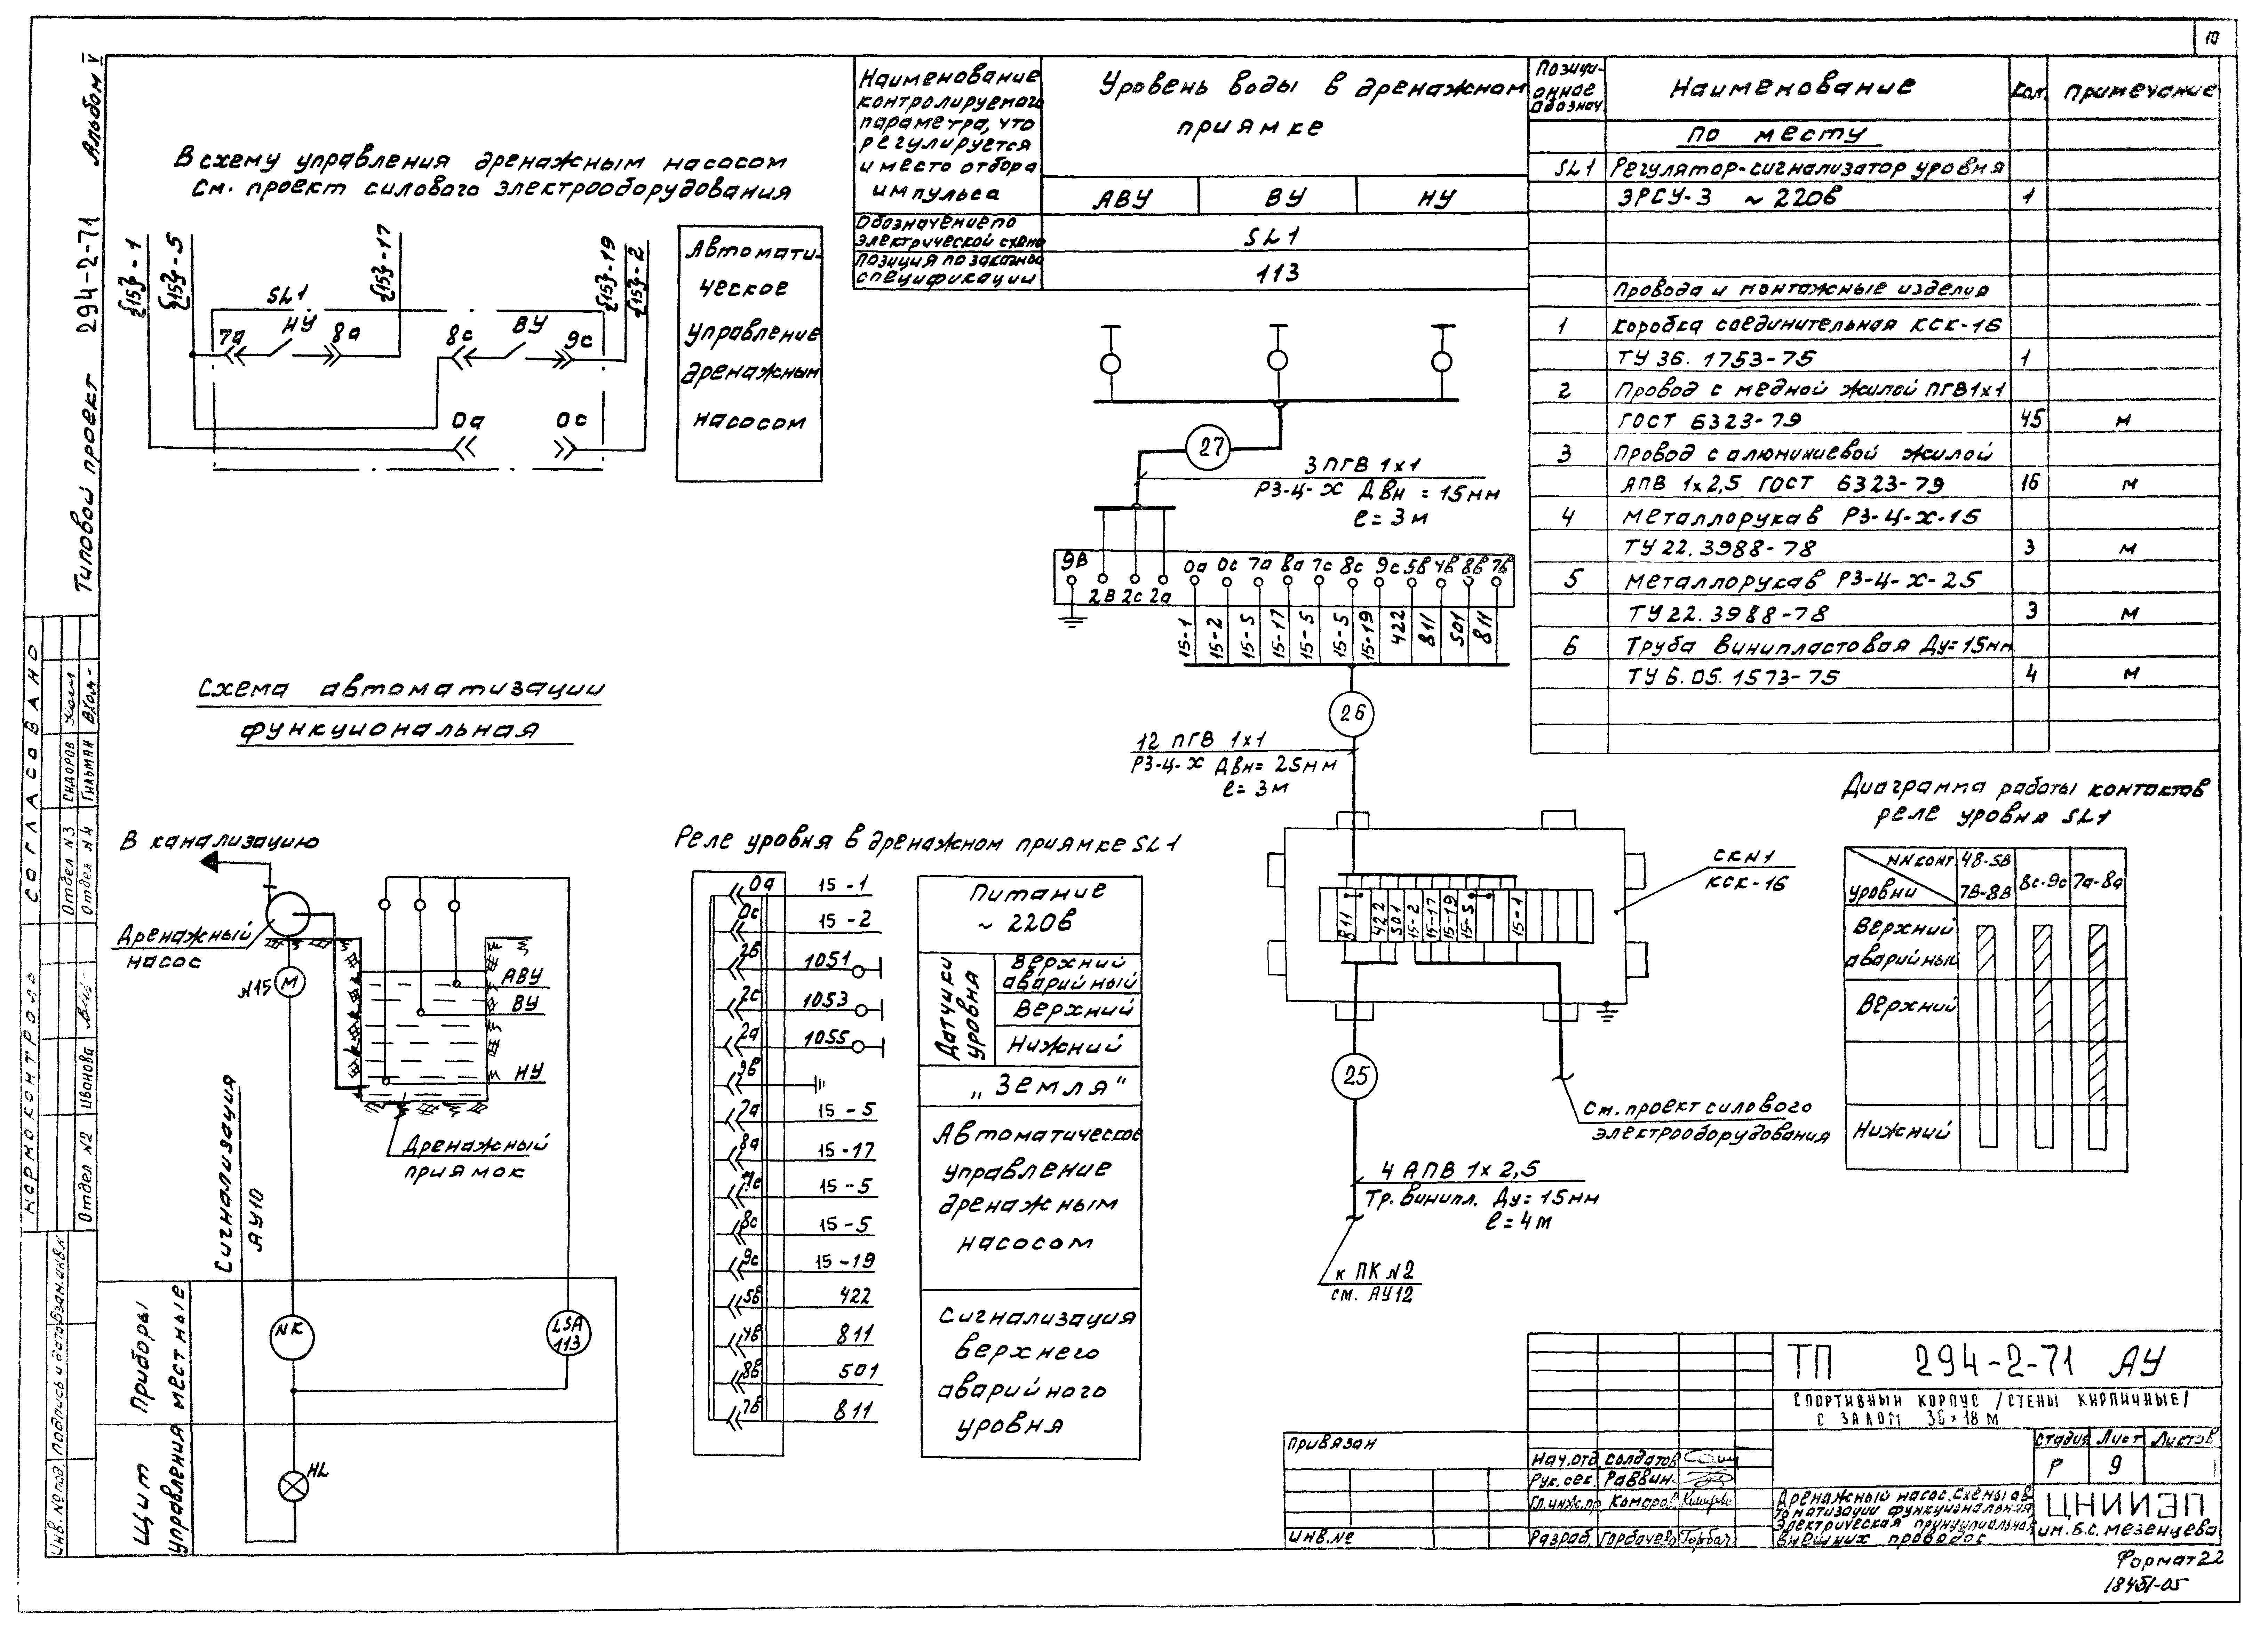 10
Типовой проект 294-2-71 Альбом V
В схему управления дренажным насосом
см. проект силового электрооборудования
{15}-1
{15}-5
{15}-17
{15}-19
{15}-2
SL1
7а НУ 8а
8с ВУ 9с
0а 0с
Автомати-
ческое
управление
дренажным
насосом
Наименование
контролируемого
параметра, что
регулируется
и место отбора
импульса
Уровень воды в дренажном
приямке
АВУ ВУ НУ
Обозначение по
электрической схеме
SL1
Позиция по заказной
спецификации
113
27
3 ПГВ 1х1
РЗ-Ц-Х Двн = 15мм
ℓ= 3м
9в 2в 2с 2а 0а 0с 7а 8а 7с 8с 9с 5в 4в 8в 7в
15-1 15-2 15-5 15-17 15-5 15-5 15-19 422 811 501 811
26
12 ПГВ 1х1
РЗ-Ц-Х Двн= 25мм
ℓ= 3м
СКN1
КСК-16
811 422 501 15-2 15-17 15-19 15-5 15-1
25
См. проект силового
электрооборудования
4 АПВ 1х2,5
Тр. винипл. Ду= 15мм
ℓ= 4м
к ПК N2
см. АУ12
Позици-
онное
обознач
Наименование
Кол.
Примечание
По месту
SL1 Регулятор-сигнализатор уровня
ЭРСУ-3 ~ 220в 1
Провода и монтажные изделия
1 Коробка соединительная КСК-16
ТУ 36. 1753-75 1
2 Провод с медной жилой ПГВ1х1
ГОСТ 6323-79 45 м
3 Провод с алюминиевой жилой
АПВ 1х2,5 ГОСТ 6323-79 16 м
4 Металлорукав РЗ-Ц-Х-15
ТУ 22. 3988-78 3 м
5 Металлорукав РЗ-Ц-Х-25
ТУ 22. 3988-78 3 м
6 Труба винипластовая Ду= 15мм
ТУ 6. 05. 1573-75 4 м
Диаграмма работы контактов
реле уровня SL1
NN конт.
уровни
4в-5в
7в-8в
8с-9с
7а-8а
Верхний
аварийный
Верхний
Нижний
Схема автоматизации
функциональная
В канализацию
Дренажный
насос
N15
М
АВУ
ВУ
НУ
Дренажный
приямок
Сигнализация
АУ10
Приборы
местные
NK
LSA
113
Щит
управления
HL
Реле уровня в дренажном приямке SL1
0а 15-1
0с 15-2
2в 1051
2с 1053
2а 1055
9в
7а 15-5
8а 15-17
7с 15-5
8с 15-5
9с 15-19
5в 422
4в 811
8в 501
7в 811
Питание
~ 220в
Датчики
уровня
Верхний
аварийный
Верхний
Нижний
„Земля"
Автоматическое
управление
дренажным
насосом
Сигнализация
верхнего
аварийного
уровня
Согласовано
Отдел N3 Сидоров
Отдел N4 Гильман
Нормоконтроль
Отдел N2 Иванова
Инв. № под. Подпись и дата Взам. инв. N
Привязан
Инв. №
Нач. отд. Солдатов
Рук. сек. Раввин
Гл. инж. пр. Комаров
Разраб. Горбачева
ТП 294-2-71 АУ
Спортивный корпус /стены кирпичные/
с залом 36×18 м
Стадия Лист Листов
Р 9
Дренажный насос. Схемы ав-
томатизации функциональная
электрическая принципиальная
внешних проводок.
ЦНИИЭП
им. Б.С. Мезенцева
Формат 22
18451-05